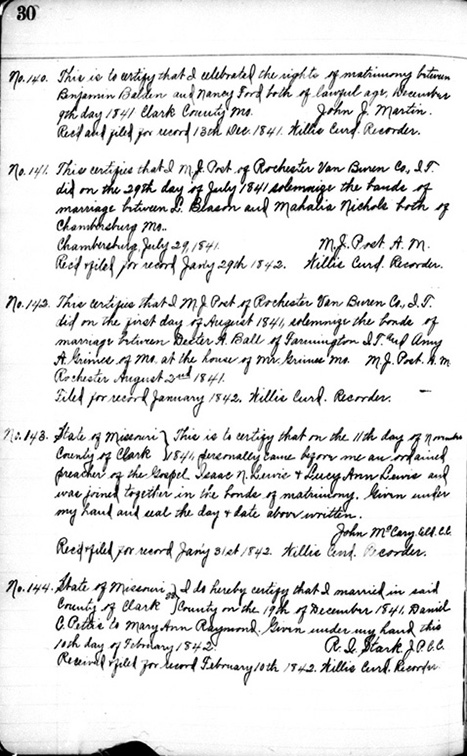 30
No. 140. This is to certify that I celebrated the rights of matrimony between
Benjamin Balden and Nancy Ford both of lawful age, December
9th day 1841 Clark County Mo. John J. Martin.
Rec'd and filed for record 13th Dec. 1841. Willis Curd. Recorder.
No. 141. This certifies that I M.J. Post of Rochester Van Buren Co., I.T.
did on the 29th day of July 1841 solemnize the bands of
marriage between L. Beason and Mahalia Nichols both of
Chambersburg Mo..
Chambersburg, July 29, 1841. M.J. Post. A. M.
Rec'd & filed for record Jan'y 29th 1842. Willis Curd. Recorder.
No. 142. This certifies that I M J Post of Rochester Van Buren Co., I.T.
did on the first day of August 1841, solemnize the bonds of
marriage between Dexter A. Ball of Farmington I.T. and Amy
A. Grimes of Mo. at the house of Mr. Grimes Mo. M.J. Post. A. M.
Rochester August 2nd 1841.
Filed for record January 1842. Willis Curd. Recorder.
No. 143. State of Missouri } This is to certify that on the 11th day of November
County of Clark } 1841, personally came before me an ordained
preacher of the Gospel Isaac N. Lewis & Lucy Ann Lewis and
was joined together in the bonds of matrimony. Given under
my hand and seal the day & date above written.
John McCary, Eld. C.C.
Rec'd & filed for record Jan'y 31st 1842. Willis Curd. Recorder.
No. 144. State of Missouri } I do hereby certify that I married in said
County of Clark } County on the 19th of December 1841, Daniel
C. Pettis to Mary Ann Raymond. Given under my hand this
10th day of February 1842. R. I. Stark J.P.C.C.
Received & filed for record February 10th 1842. Willis Curd. Recorder.